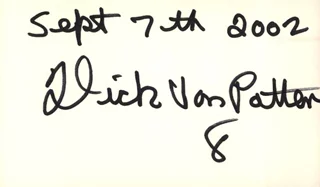 Sept 7th 2002
Dick Van Patten
8